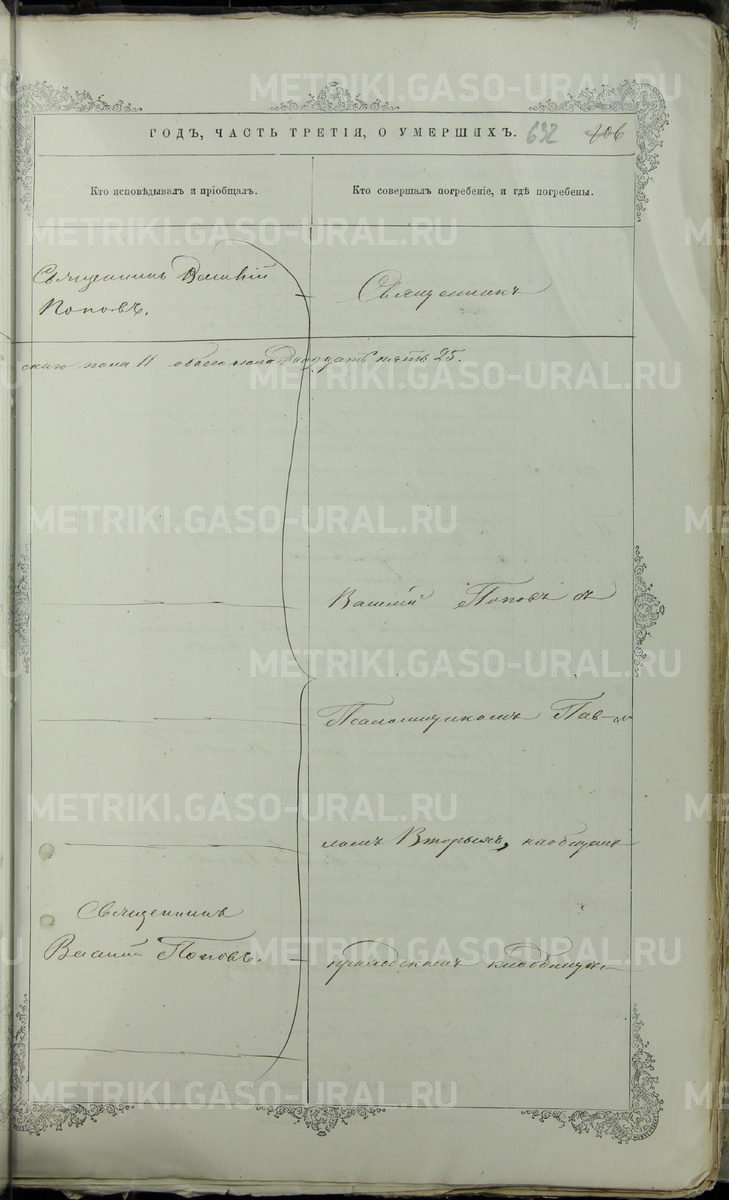 METRIKI.GASO-URAL.RU
ГОДЪ, ЧАСТЬ ТРЕТІЯ, О УМЕРШИХЪ.
632
406
Кто исповѣдывалъ и пріобщалъ.
Кто совершалъ погребеніе, и гдѣ погребены.
Священникъ Василій
Поповъ.
Священникъ
скаго пола 11 обоего пола двадцать пять 25.
Василій Поповъ съ
Псаломщикомъ Пав-
ломъ Вторыхъ, на общемъ
Священникъ
Василій Поповъ.
приходскомъ кладбищѣ